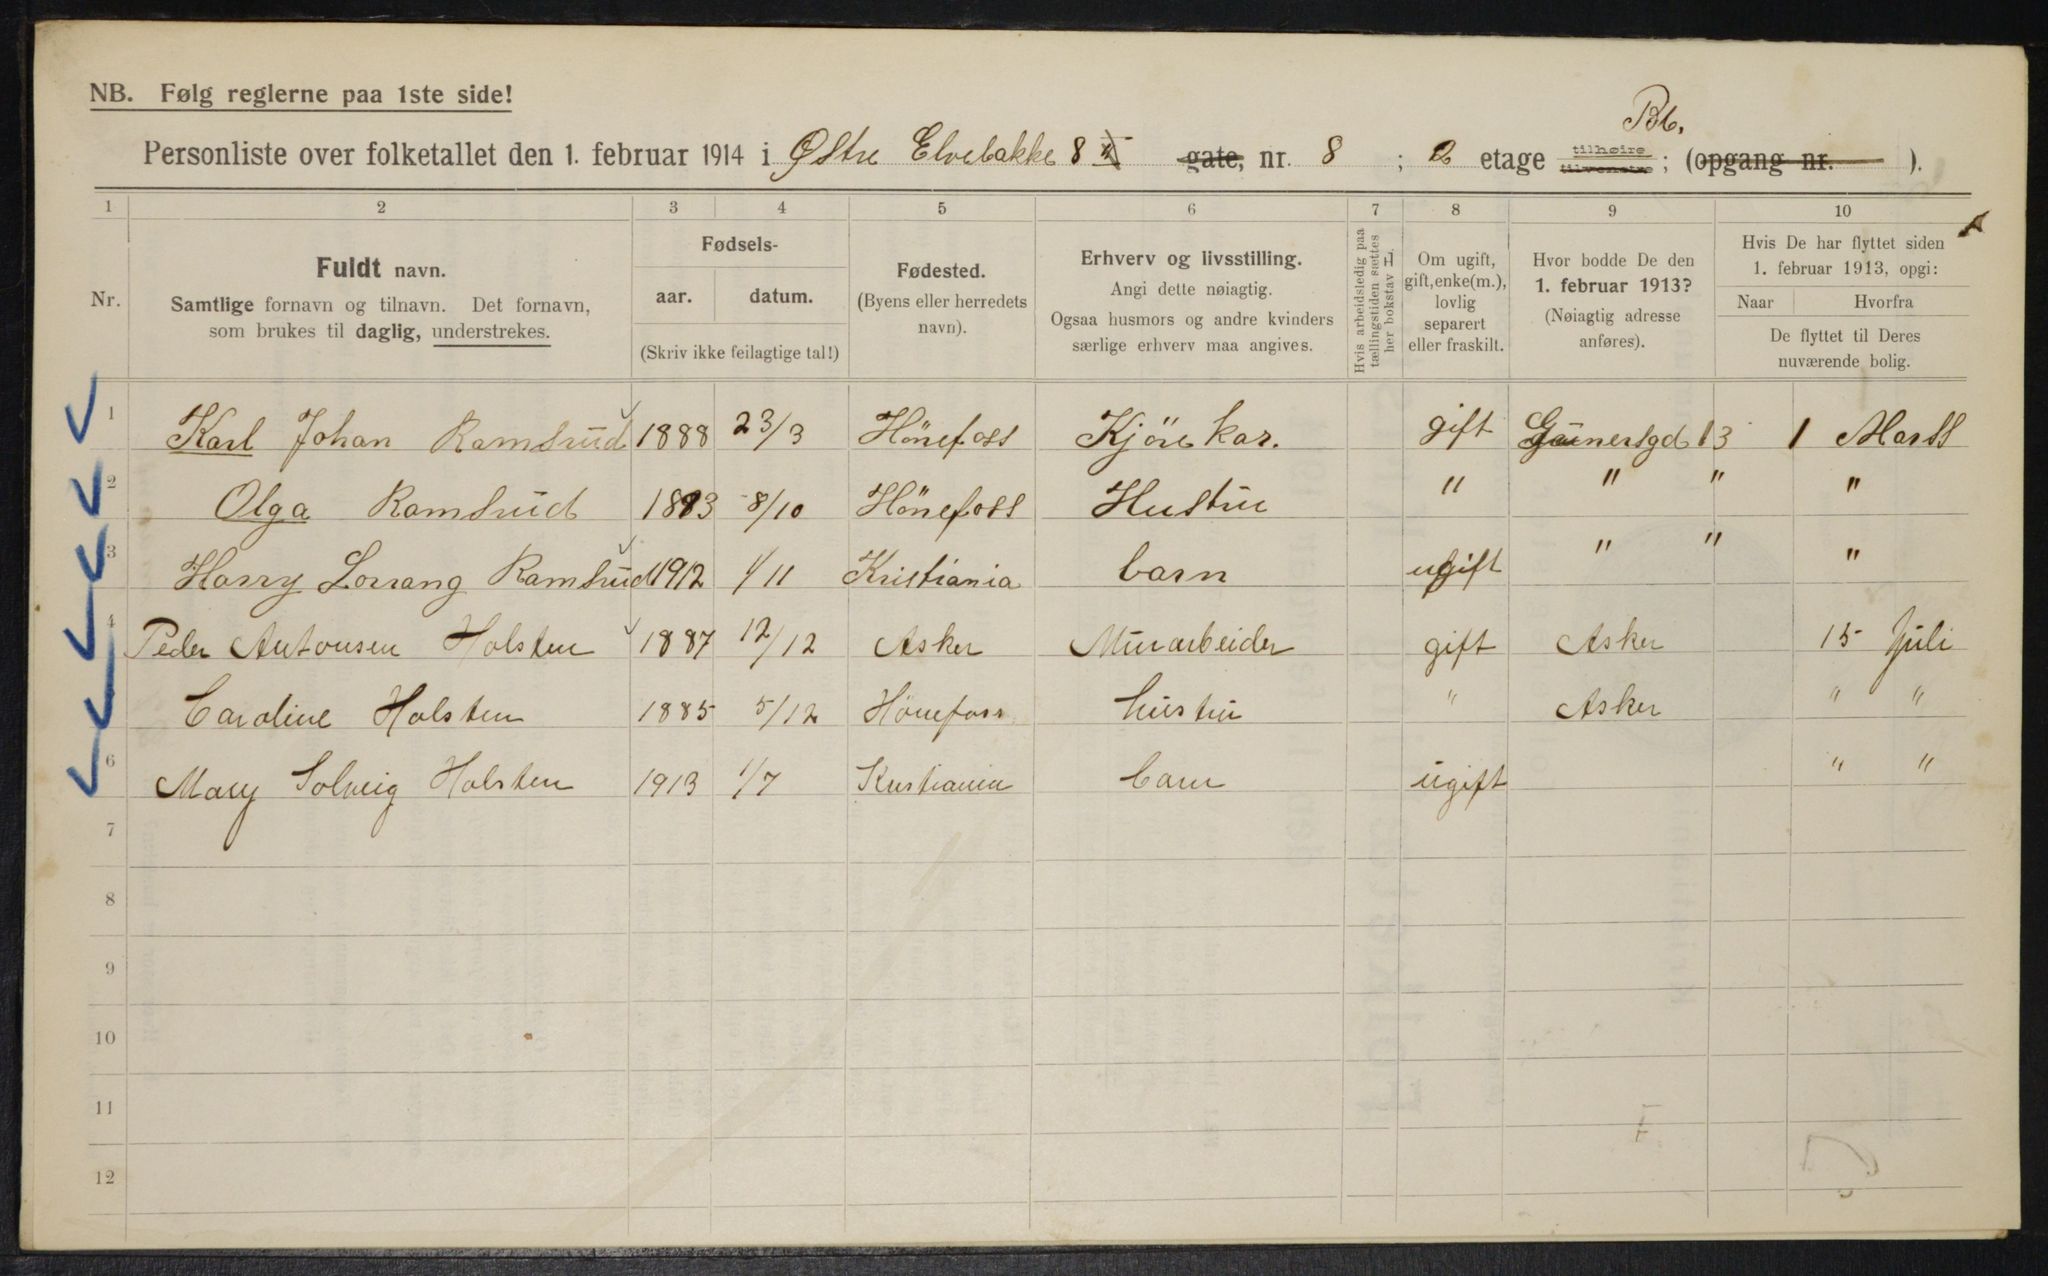 NB. Følg reglerne paa 1ste side!
Bt.
Personliste over folketallet den 1. februar 1914 i Østre Elvebakke 8 gate, nr. 8 ; 2 etage tilhøire tilvenstre ; (opgang nr. ).
1 2 3 4 5 6 7 8 9 10
Nr.
Fuldt navn.
Samtlige fornavn og tilnavn. Det fornavn,
som brukes til daglig, understrekes.
Fødsels-
aar. datum.
(Skriv ikke feilagtige tal!)
Fødested.
(Byens eller herredets
navn).
Erhverv og livsstilling.
Angi dette nøiagtig.
Ogsaa husmors og andre kvinders
særlige erhverv maa angives.
Hvis arbeidsledig paa
tællingstiden sættes
her bokstav L.
Om ugift,
gift, enke(m.),
lovlig
separert
eller fraskilt.
Hvor bodde De den
1. februar 1913?
(Nøiagtig adresse
anføres).
Hvis De har flyttet siden
1. februar 1913, opgi:
Naar Hvorfra
De flyttet til Deres
nuværende bolig.
1 Karl Johan Ramsrud 1888 23/3 Hönefoss Kjörekar. gift Günersgd 13 1 Marss
2 Olga Ramsrud 1883 8/10 Hönefoss Hustru " " " "
3 Harry Lorrang Ramsrud 1912 1/11 Kristiania barn ugift " " "
4 Peder Antonsen Holsten 1887 12/12 Asker Murarbeider gift Asker 15 Juli
Caroline Holsten 1885 5/12 Hönefoss hustru " Asker " "
6 Mary Solveig Holsten 1913 1/7 Kristiania barn ugift " "
7
8
9
10
11
12